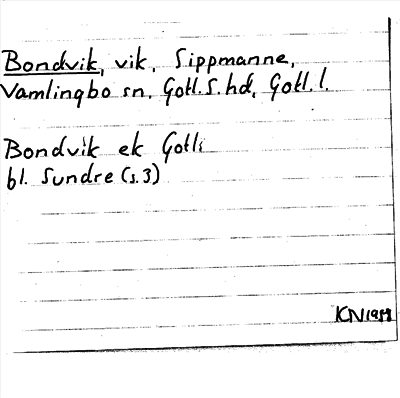 Bondvik, vik, Sippmanne,
Vamlingbo sn, Gotl. S. hd, Gotl. l.
Bondvik ek Gotl:
bl. Sundre (s. 3)